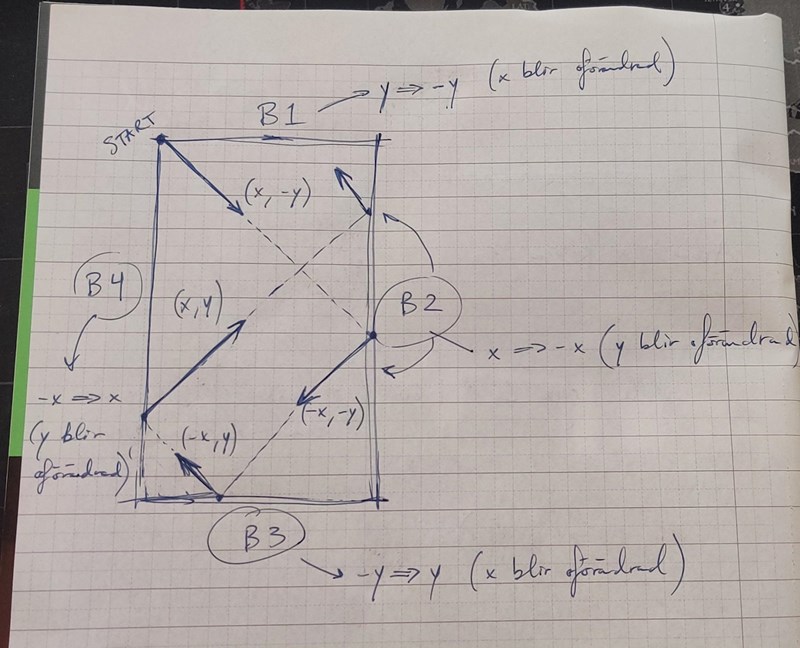 B1 y ⇒ -y (x blir oförändrad)
START
(x, -y)
B4
(x, y)
B2
x ⇒ -x (y blir oförändrad)
-x ⇒ x
(y blir
oförändrad)
(-x, -y)
(-x, y)
B3
-y ⇒ y (x blir oförändrad)